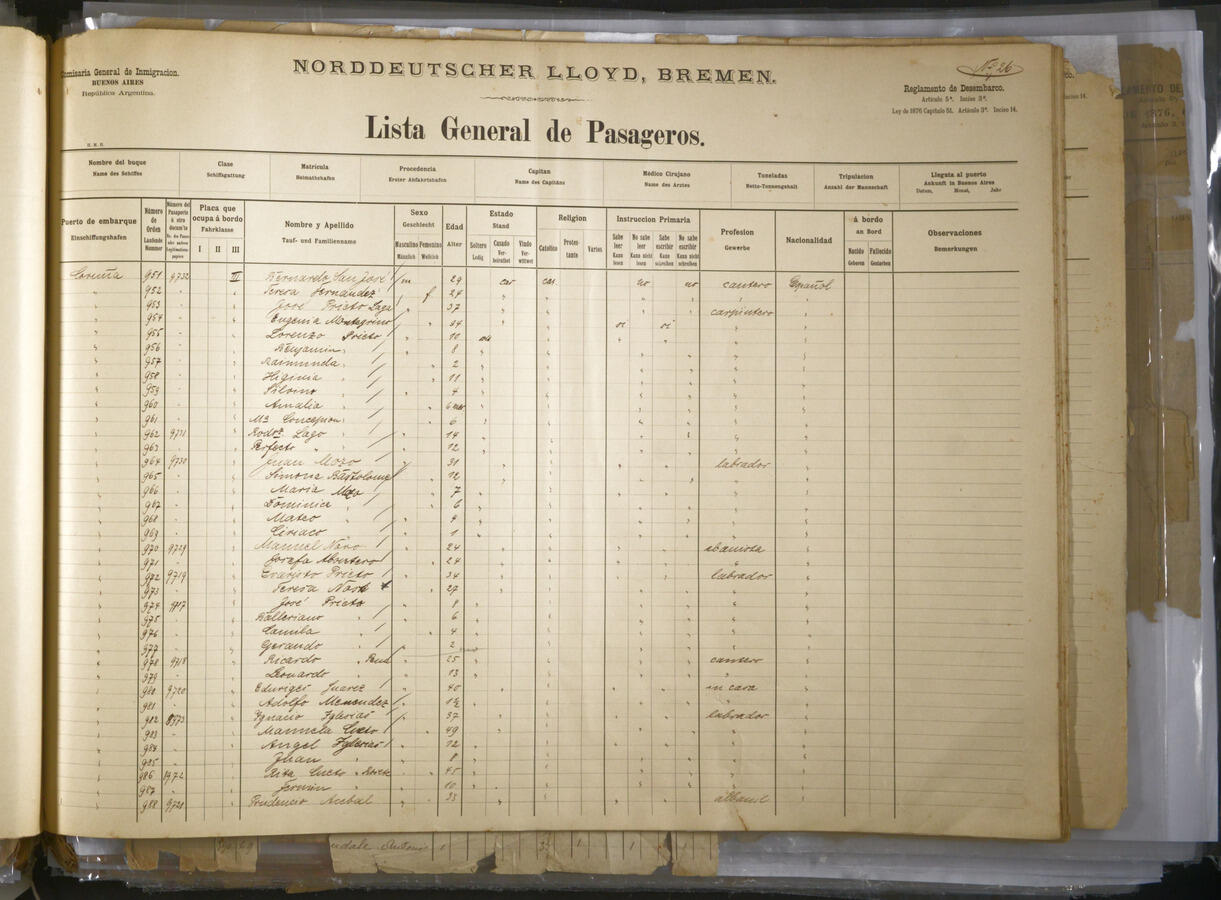 Comisaria General de Inmigracion.
BUENOS AIRES
República Argentina.
H. M. H.
NORDDEUTSCHER LLOYD, BREMEN.
Lista General de Pasageros.
Nº 26
Reglamento de Desembarco.
Artículo 5º. Inciso 3º.
Ley de 1876 Capítulo 51. Artículo 3º. Inciso 14.
Nombre del buque Clase Matricula Procedencia Capitan Médico Cirujano Toneladas Tripulacion Llegata al puerto
Name des Schiffes Schiffsgattung Heimathshafen Erster Abfahrtshafen Name des Capitäns Name des Arztes Netto-Tonnengehalt Anzahl der Mannschaft Ankunft in Buenos Aires
Datum, Monat, Jahr
Puerto de embarque Número de Orden Placa que ocupa á bordo Nombre y Apellido Sexo Edad Estado Religion Instruccion Primaria Profesion Nacionalidad á bordo Observaciones
Einschiffungshafen Laufende Nummer Fahrklasse Tauf- und Familienname Geschlecht Alter Stand Gewerbe an Bord Bemerkungen
I II III Masculino Femenino Soltero Casado Viudo Catolico Protestante Varios Sabe leer No sabe leer Sabe escribir No sabe escribir Nacido Fallecido
Männlich Weiblich Ledig Verheirathet Verwittwet Kann lesen Kann nicht lesen Kann schreiben Kann nicht schreiben Geboren Gestorben
Coruña 951 9732 III Bernardo San José m 29 cas cat. no no cantero Español
952 Teresa Fernandez f 24
953 José Prieto Laga 37 carpintero
954 Eugenia 34 si si
955 Lorenzo Prieto 10
956 Benjamin 8
957 Raimunda 2
958 Higinia 11
959 Silvino 4
960 Amalia 6
961 Mª Concepcion 6
962 9731 Rodr. Lago 14
963 Perfecto 12
964 9730 Juan Mozo 31 labrador
965 Simona 12
966 Maria Mozo 7
967 Dominica 6
968 Mateo 4
969 Ciriaco 1
970 9729 Manuel 24 ebanista
971 Josefa 24
972 9719 Evaristo Prieto 34 labrador
973 Teresa 27
974 9717 José Prieto 8
975 Balleriano 6
976 Camila 4
977 Gerardo 2
978 9718 Ricardo 25 cantero
979 Leonardo 13
980 9720 Eduriges Suarez 40 in casa
981 Adolfo Menendez 12
982 Ignacio Iglesias 37 labrador
983 Manuela Cueto 49
984 Angel Iglesias 12
985 Juan 8
986 Rita Cueto 45
987 Fermin 10
988 9721 Prudencio 33 albanil